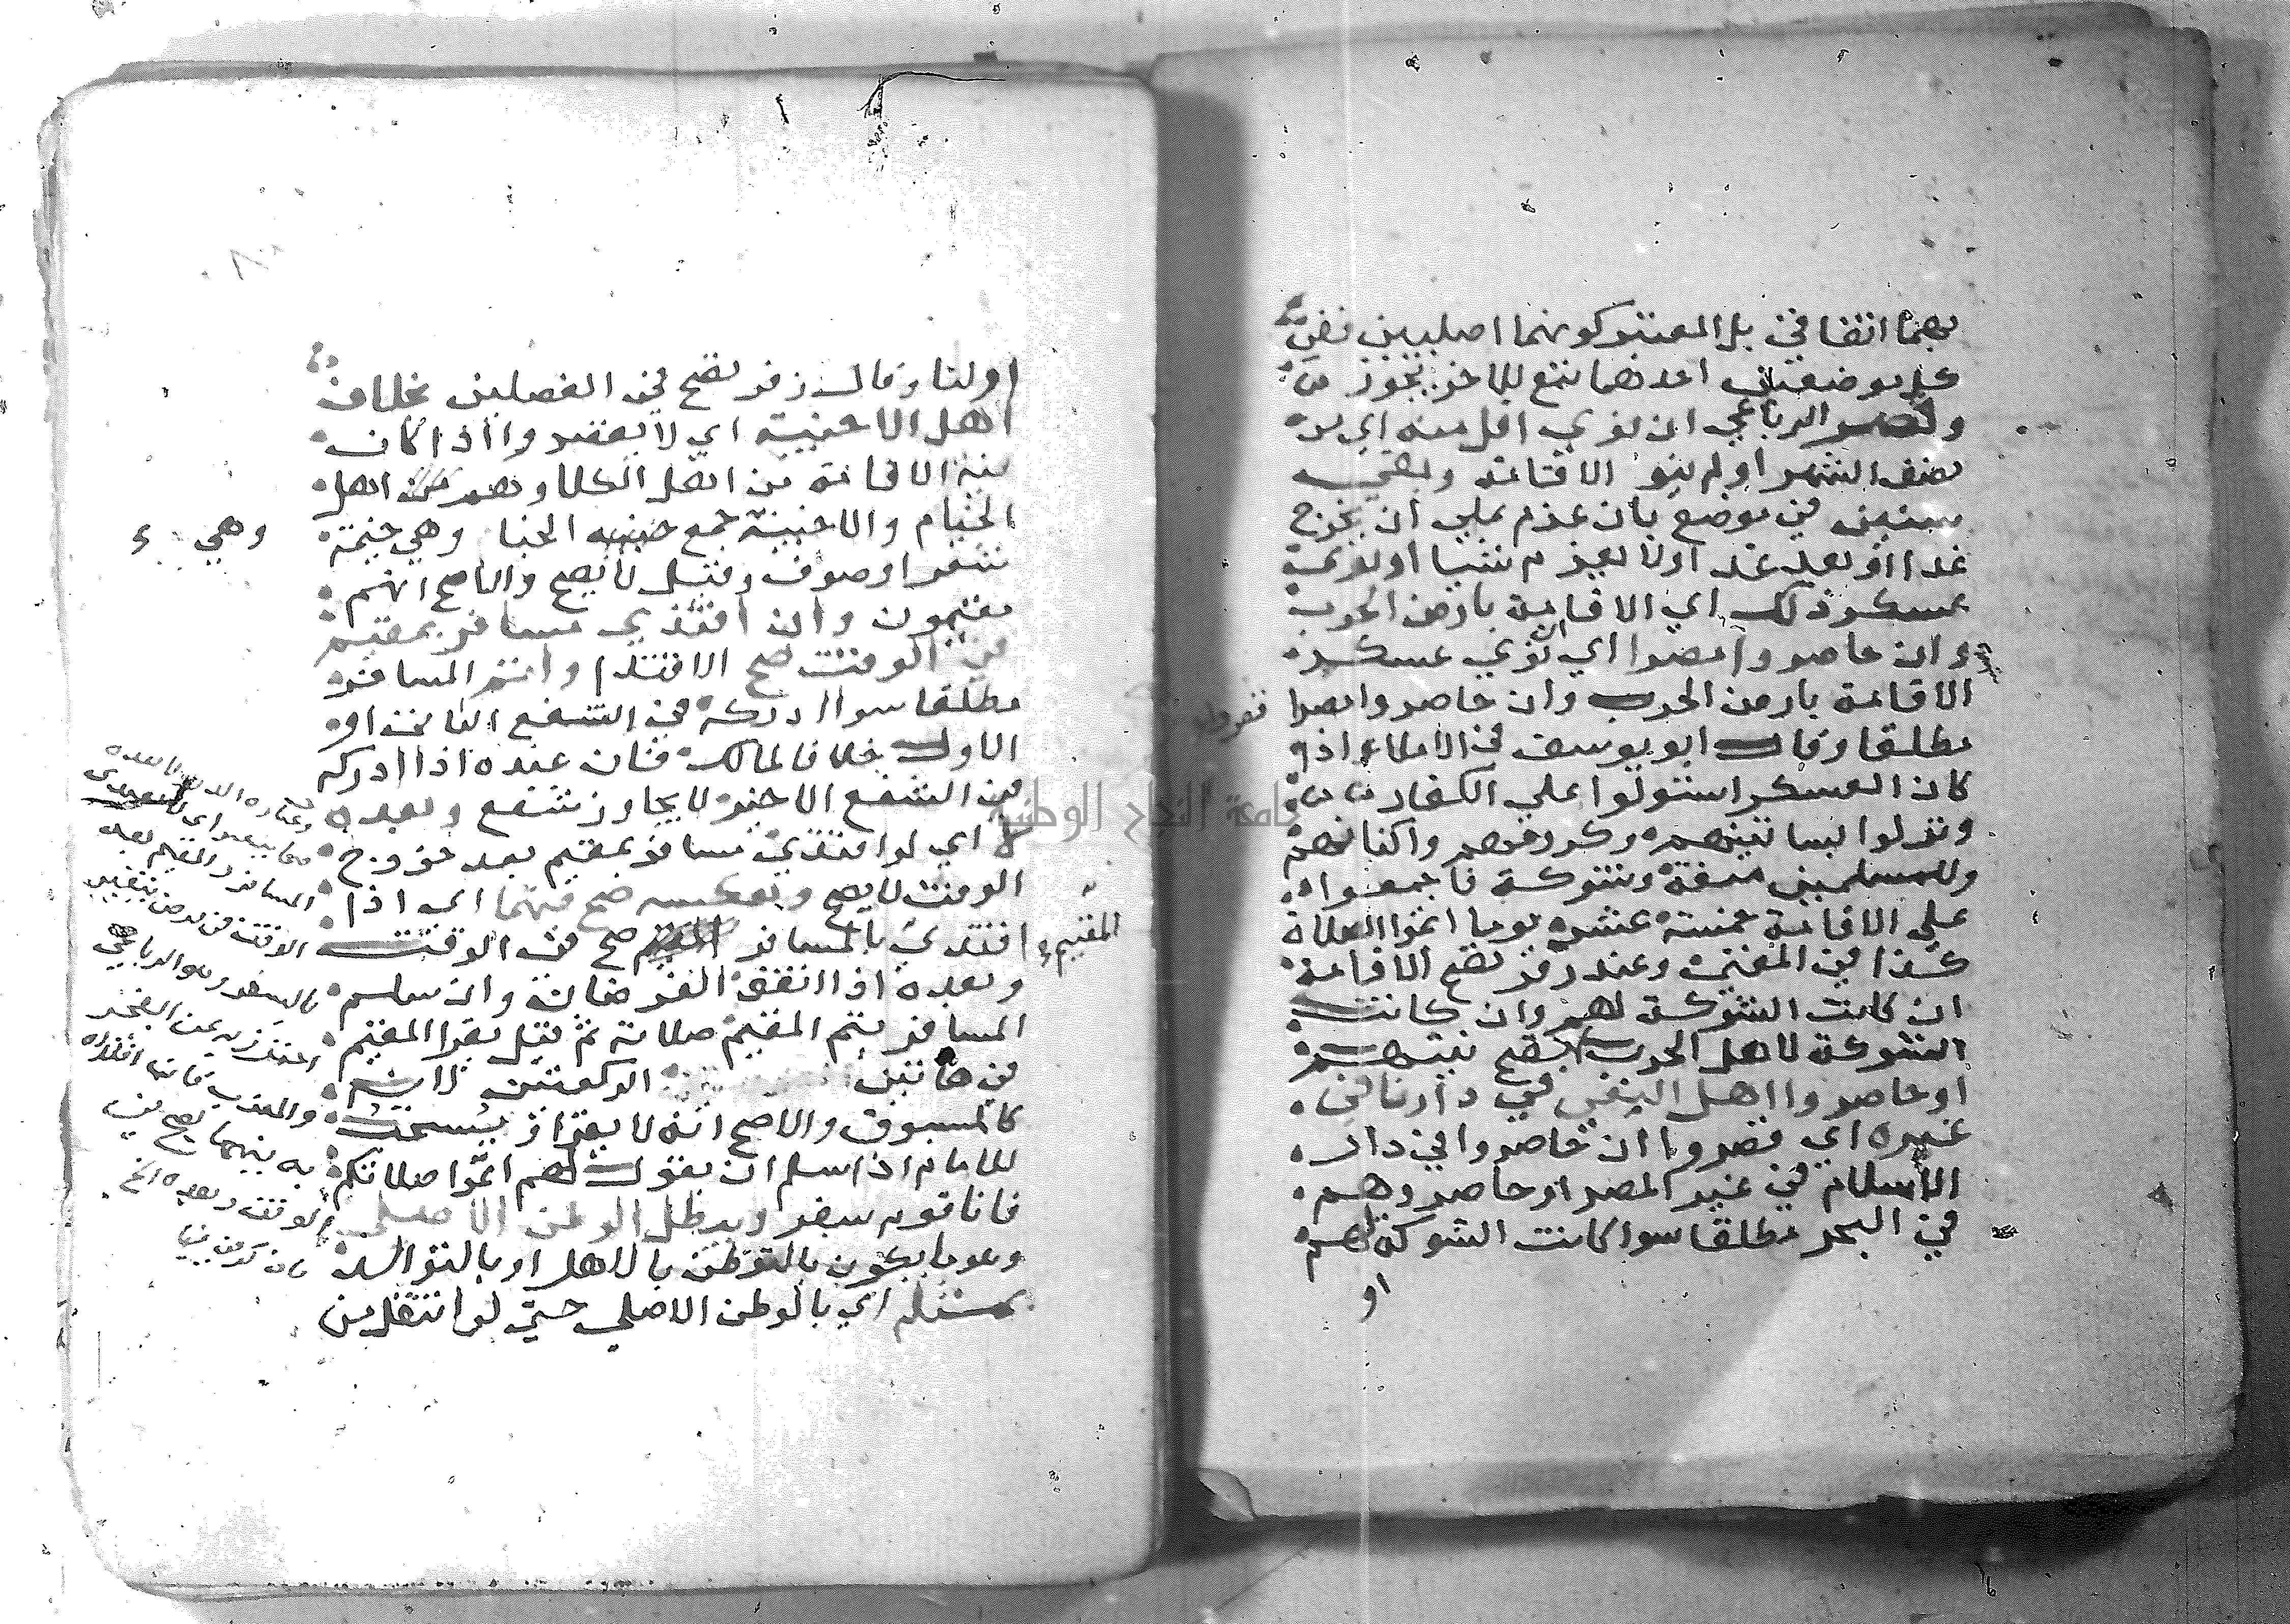 بهما اتفاقي بل المعتبر كونهما اصليين فمن
كل موضعين احدهما تبع للاخر يجوز من
وقصر الرباعي ان نوي اقل منه اي من
نصف الشهر او لم ينو الاقامة وبقي
سنين في موضع بان عزم علي ان يخرج
غدا او بعد غد او لا يعزم شيا او نوي
عسكر ذلك اي الاقامة بارض الحرب
وان حاصروا مصرا اي ان نوي عسكر
الاقامة بارض الحرب وان حاصروا مصرا
مطلقا وقال ابو يوسف في الاملاء اذا
كان العسكر استولوا علي الكفار
ونزلوا بساتينهم وكرومهم واكنافهم
وللمسلمين منعة وشوكة فاجمعوا
علي الاقامة خمسة عشر يوما اتموا الصلاة
كذا في المغني وعند زفر تصح الاقامة
ان كانت الشوكة لهم وان كانت
الشوكة لاهل الحرب لا تصح نيتهم
او حاصروا اهل البغي في دارنا في
غيره اي قصروا ان حاصروا في دار
الاسلام في غير المصر او حاصروهم
في البحر مطلقا سوا كانت الشوكة لهم
او
او لنا وقال زفر تصح في الفصلين بخلاف
اهل الاخبية اي لا يقصروا اذا كان
نية الاقامة من اهل الكلا وهم اهل
الخيام والاخبية جمع الخبا وهي خيمة
وهي
شعر او صوف وقيل لا يصح والاصح انهم
مقيمون وان اقتدي مسافر بمقيم
في الوقت صح الاقتدا واتم المسافر
مطلقا سوا ادركه في الشفع الثاني او
الاول خلافا لمالك فان عنده اذا ادركه
في الشفع الاخير لا يجاوز شفع وبعده
لا اي لو اقتدي مسافر بمقيم بعد خروج
الوقت لا يصح وبعكسه صح فيهما اي اذا
المقيم
اقتدي بالمسافر صح في الوقت
وبعده اذا اتفق الفرضان وان سلم
المسافر يتم المقيم صلاته ثم قيل يقرا المقيم
في هاتين الركعتين لانه
كالمسبوق والاصح انه لا يقرا ويستحب
للامام اذا سلم ان يقول لهم اتموا صلاتكم
فانا قوم سفر ويبطل الوطن الاصلي
وهو ما يكون بالتوطن بالاهل او بالتوالد
بمثله اي بالوطن الاصلي حتي لو انتقل من
المسافر والمقيم بعد
الوقت في فرض يتغير
بالسفر وهو الرباعي
احترز به عن الفجر
والمغرب فان اقتداه
به فيهما يصح في
الوقت وبعده الخ
جامعة النجاح الوطنية